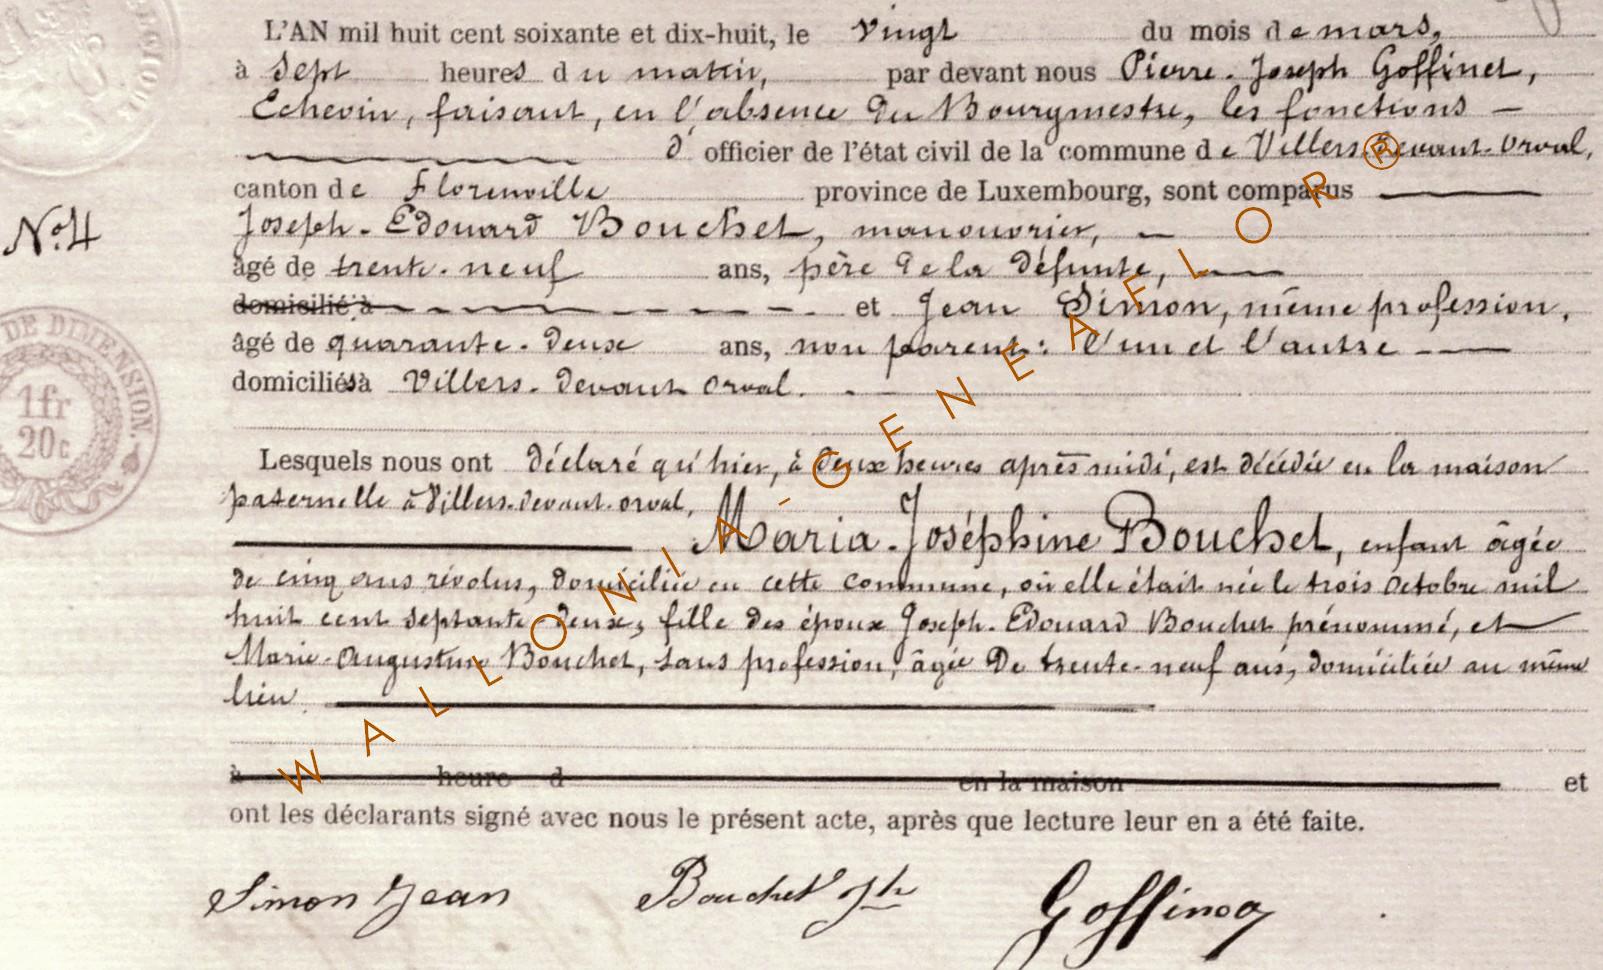 L'AN mil huit cent soixante et dix-huit, le vingt du mois de mars,
à sept heures du matin, par devant nous Pierre-Joseph Goffinet,
Echevin, faisant, en l'absence du Bourgmestre, les fonctions —
d'officier de l'état civil de la commune de Villers-devant-Orval,
canton de Florenville province de Luxembourg, sont comparus
N° 4
Joseph-Edouard Bouchet, manouvrier, —
âgé de trente-neuf ans, père de la défunte, —
domicilié à et Jean Simon, même profession,
âgé de quarante-deux ans, non parent: l'un et l'autre —
domiciliés à Villers-devant-Orval.
DE DIMENSION.
1fr
20c
Lesquels nous ont déclaré qu'hier, à deux heures après midi, est décédée en la maison
paternelle à Villers-devant-orval,
Maria-Joséphine Bouchet, enfant âgée
de cinq ans révolus, domiciliée en cette commune, où elle était née le trois octobre mil
huit cent septante-deux, fille des époux Joseph-Edouard Bouchet prénommé, et
Marie-Augustine Bouchet, sans profession, âgée de trente-neuf ans, domiciliée au même
lieu.
à heure d en la maison et
ont les déclarants signé avec nous le présent acte, après que lecture leur en a été faite.
Simon Jean Bouchet Jph Goffinet
WALLONIA-GENEAFLOR®